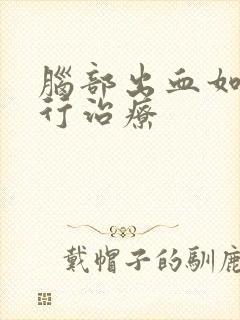 腦部出血如
行治療
戴帽子的馴鹿